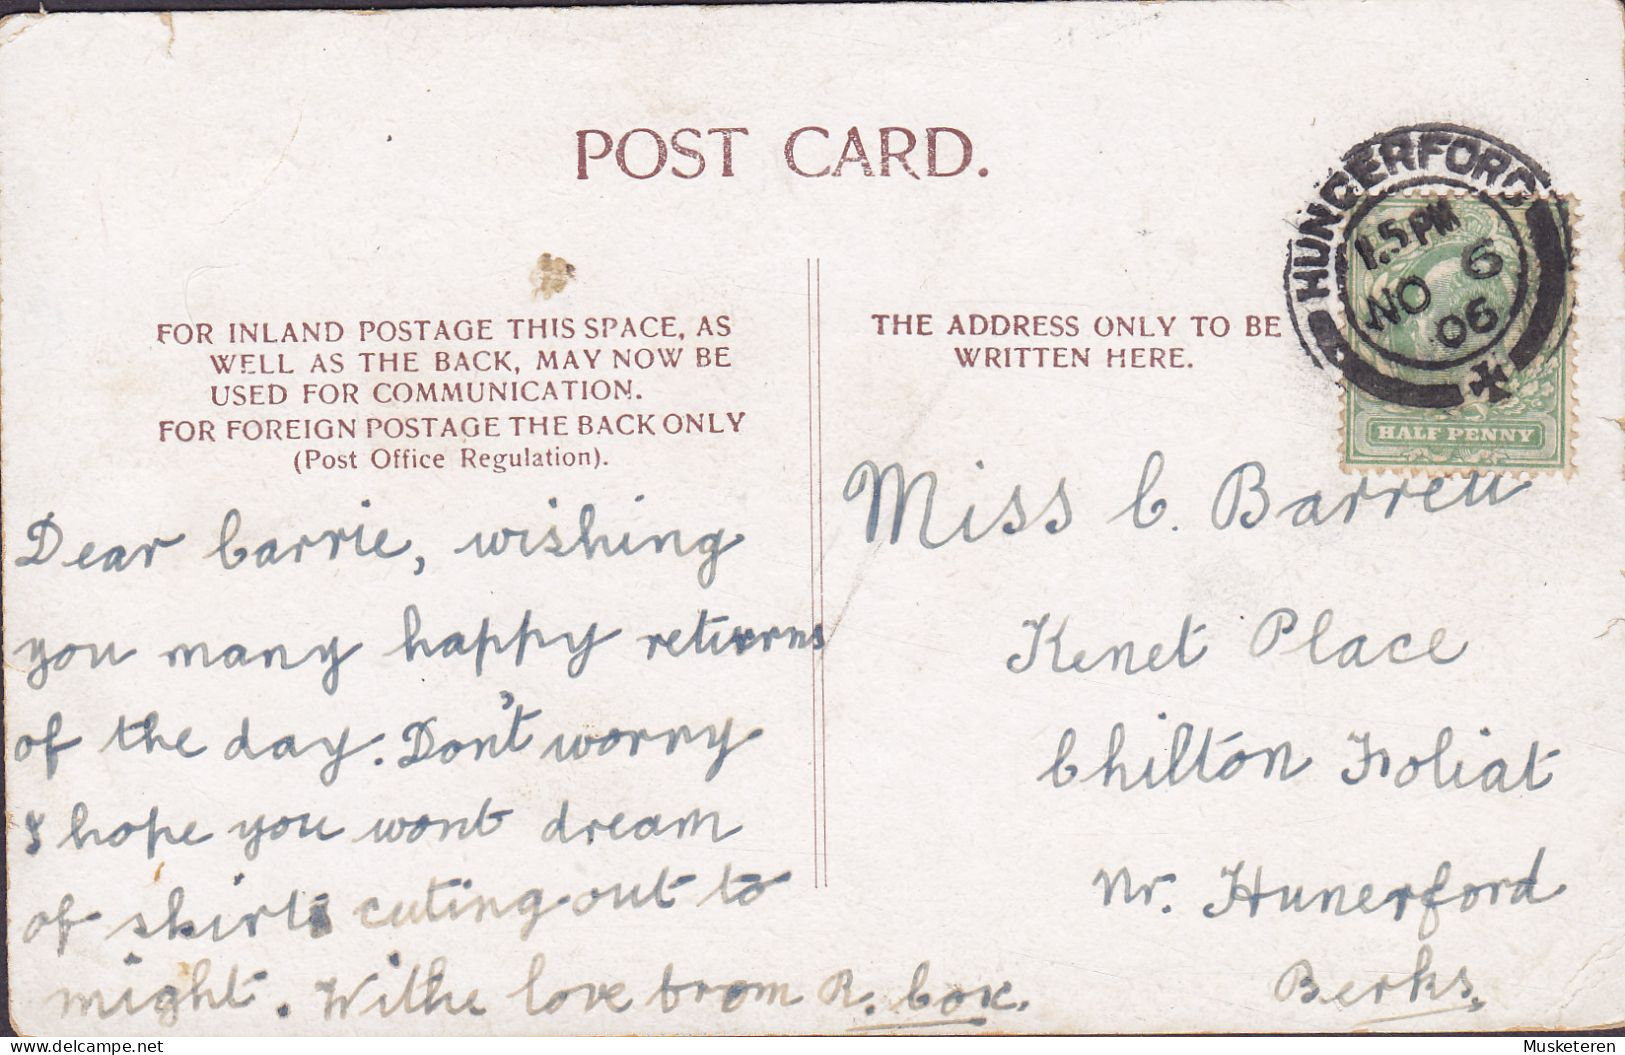 POST CARD.
HUNGERFORD
1.5 PM
NO 6
06
HALF PENNY
FOR INLAND POSTAGE THIS SPACE, AS
WELL AS THE BACK, MAY NOW BE
USED FOR COMMUNICATION.
FOR FOREIGN POSTAGE THE BACK ONLY
(Post Office Regulation).
THE ADDRESS ONLY TO BE
WRITTEN HERE.
Dear Carrie, wishing
you many happy returns
of the day. Don't worry
I hope you wont dream
of skirts cuting out to
might. Withe love from R. Cox.
Miss C. Barrett
Kenet Place
Chilton Foliat
Nr. Hunerford
Berks.
www.delcampe.net
Musketeren